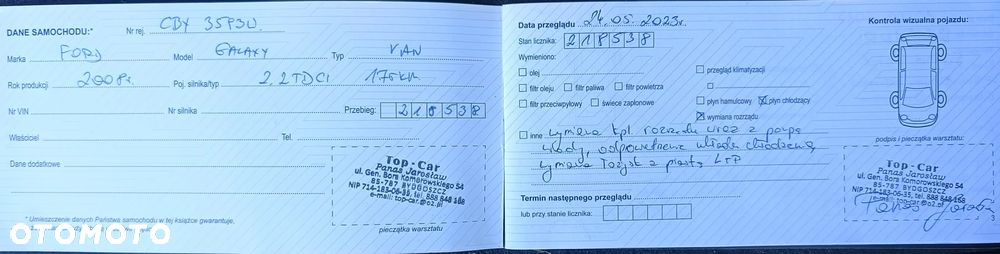 DANE SAMOCHODU:* Nr rej. CBY 35P3U
Marka FORD Model GALAXY Typ VAN
Rok produkcji 2008r. Poj. silnika/typ 2.2 TDCI 175KM
Nr VIN Nr silnika Przebieg: 218538
Właściciel Tel.
Dane dodatkowe
Top-Car
Panas Jarosław
ul. Gen. Bora Komorowskiego 54
85-787 BYDGOSZCZ
NIP 714-183-06-35, tel. 888 848 168
e-mail: top-car@o2.pl
* Umieszczenie danych Państwa samochodu w tej książce gwarantuje,
pieczątka warsztatu
OTOMOTO
Data przeglądu 24.05.2023r.
Stan licznika: 218538
Wymieniono:
olej
filtr oleju filtr paliwa filtr powietrza
filtr przeciwpyłowy świece zapłonowe
przegląd klimatyzacji
płyn hamulcowy płyn chłodzący
wymiana rozrządu
inne wymiana kpl. rozrządu wraz z pompą
wody, odpowietrzenie układu chłodzenia,
wymiana łożysk z piastą L+P
Termin następnego przeglądu
lub przy stanie licznika:
Kontrola wizualna pojazdu:
podpis i pieczątka warsztatu:
Top-Car
Panas Jarosław
ul. Gen. Bora Komorowskiego 54
85-787 BYDGOSZCZ
NIP 714-183-06-35, tel. 888 848 168
e-mail: top-car@o2.pl
Panas Jarosław
3